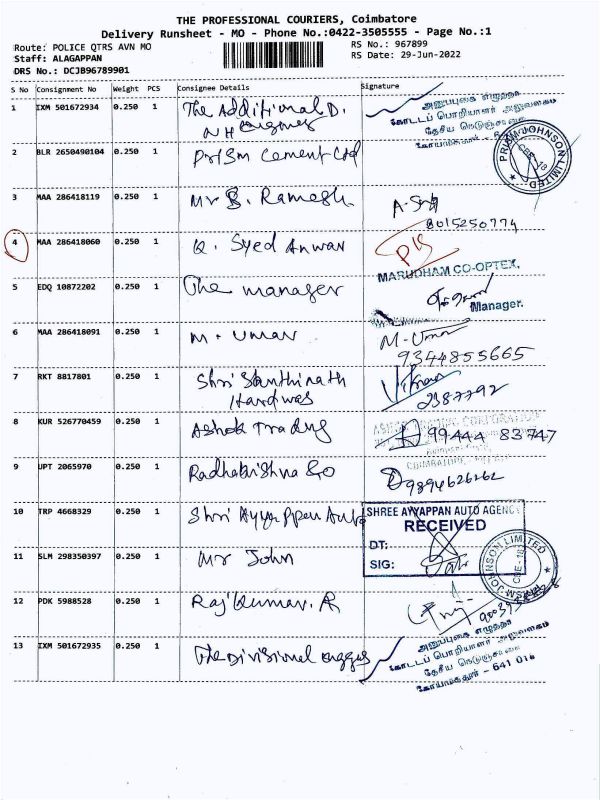 THE PROFESSIONAL COURIERS, Coimbatore
Delivery Runsheet - MO - Phone No.:0422-3505555 - Page No.:1
Route: POLICE QTRS AVN MO
RS No.: 967899
Staff: ALAGAPPAN
RS Date: 29-Jun-2022
DRS No.: DCJB96789901
S No Consignment No Weight PCS Consignee Details Signature
1 IXM 501672934 0.250 1 The Additional D.
NH
அலுவலகம்
கோட்டப் பொறியாளர்
தேசிய நெடுஞ்சாலை
2 BLR 2650490104 0.250 1 Prism Cement Ltd
PRISM JOHNSON LIMITED
CBE - 18
3 MAA 286418119 0.250 1 Mr S. Ramesh
8015250774
4 MAA 286418060 0.250 1 K. Syed Anwar
MARUDHAM CO-OPTEX,
5 EDQ 10872202 0.250 1 The manager
Manager.
6 MAA 286418091 0.250 1 M. Umar M-Umar
9344855665
7 RKT 8817801 0.250 1 Shri Santhinath
2387792
8 KUR 526770459 0.250 1 Ashok Trading
99444 83747
9 UPT 2065970 0.250 1 Radhakrishna &Co
9894626262
10 TRP 4668329 0.250 1 Shri Ayyappan Auto
SHREE AYYAPPAN AUTO AGENCY
RECEIVED
DT:
SIG:
11 SLM 298350397 0.250 1 Mr John
JOHNSON LIMITED
CBE - 18
12 PDK 5988528 0.250 1 Rajkumar. R
13 IXM 501672935 0.250 1 The Divisional
கோட்டப் பொறியாளர் அலுவலகம்
தேசிய நெடுஞ்சாலை
கோயமுத்தூர் - 641 018